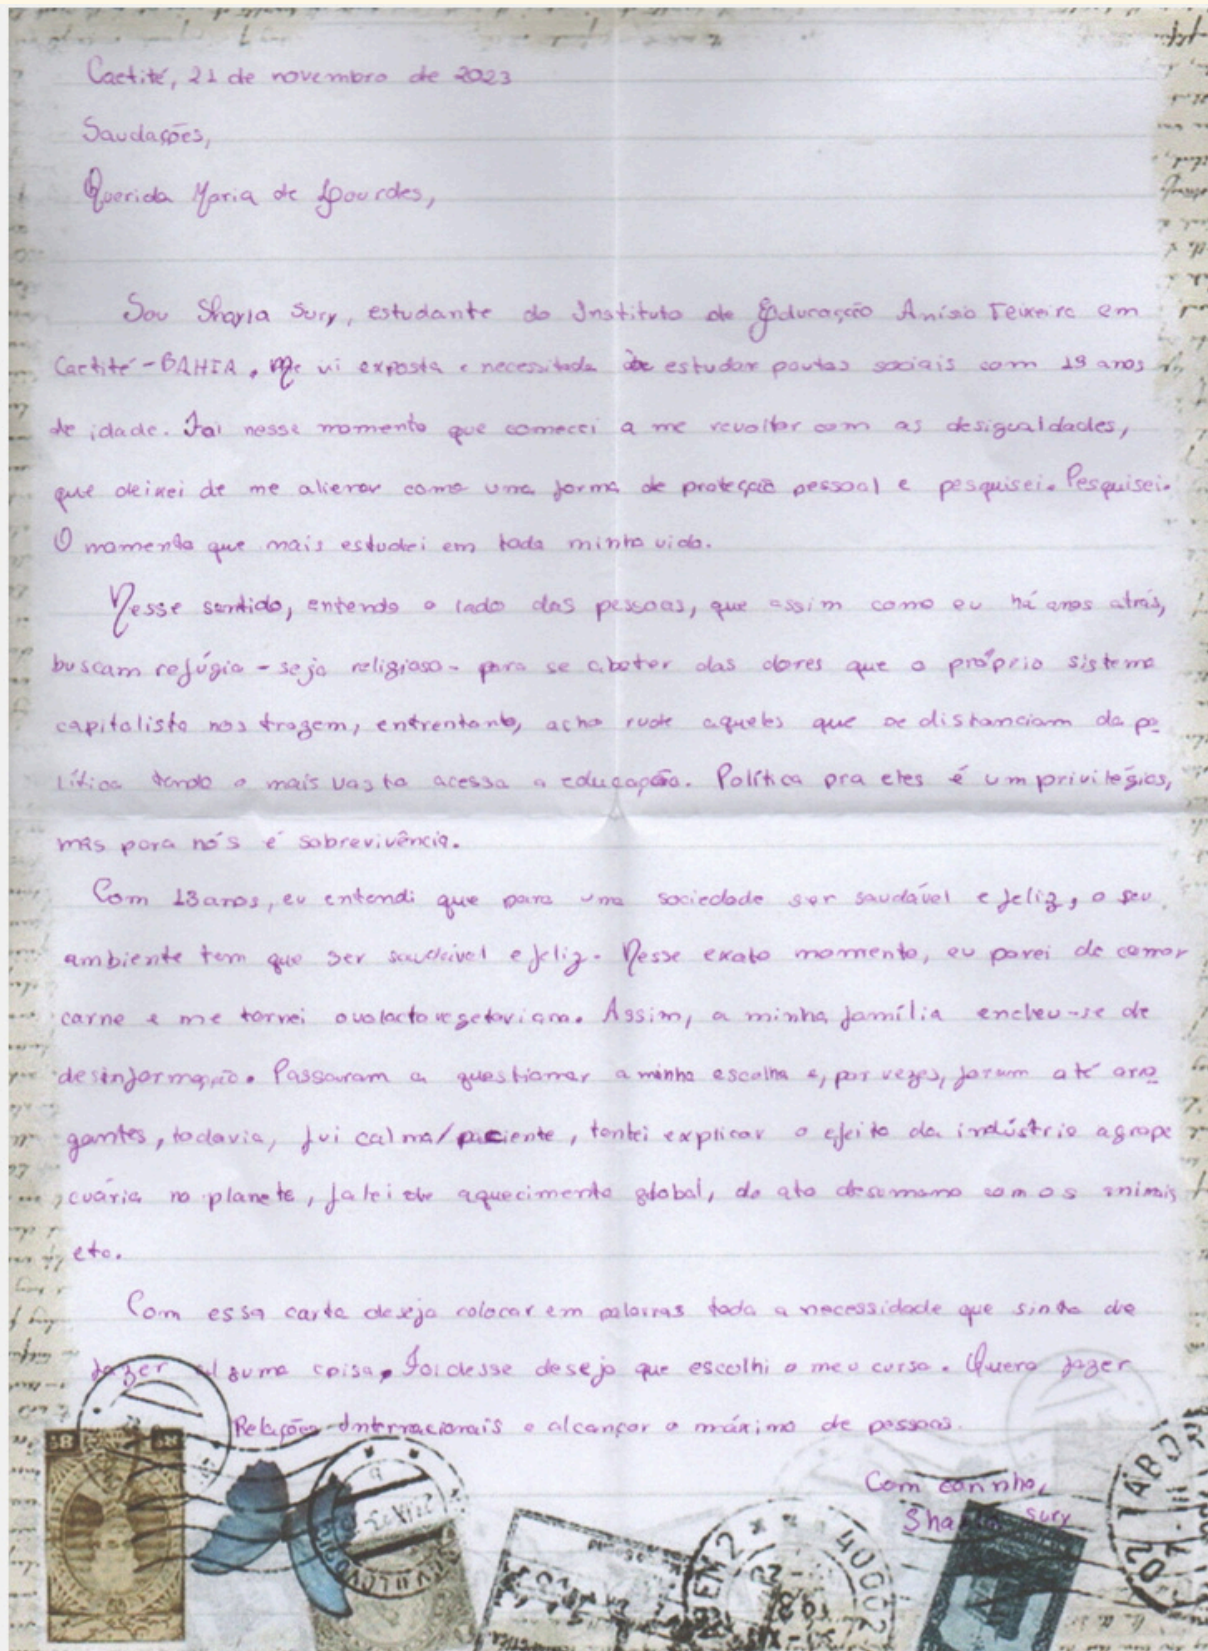 Caetité, 21 de novembro de 2023
Saudações,
Querida Maria de Lourdes,
Sou Shayla Sury, estudante do Instituto de Educação Anísio Teixeira em
Caetité-BAHIA. Me vi exposta e necessitada de estudar pautas sociais com 13 anos
de idade. Foi nesse momento que comecei a me revoltar com as desigualdades,
que deixei de me alienar como uma forma de proteção pessoal e pesquisei. Pesquisei.
O momento que mais estudei em toda minha vida.
Nesse sentido, entendo o lado das pessoas, que assim como eu há anos atrás,
buscam refúgio - seja religioso - para se abater das dores que o próprio sistema
capitalista nos trazem, entrentanto, acho rude aqueles que se distanciam da po
lítica tendo o mais vasto acesso a educação. Política pra eles é um privilégios,
mas para nós é sobrevivência.
Com 13 anos, eu entendi que para uma sociedade ser saudável e feliz, o seu
ambiente tem que ser saudável e feliz. Nesse exato momento, eu parei de comer
carne e me tornei ovolactovegetariana. Assim, a minha família encheu-se de
desinformação. Passaram a questionar a minha escolha e, por vezes, foram até arro
gantes, todavia, fui calma/paciente, tentei explicar o efeito da indústria agrope
cuária no planeta, falei de aquecimento global, do ato desumano com os animais
etc.
Com essa carta desejo colocar em palavras toda a necessidade que sinto de
fazer alguma coisa. Foi desse desejo que escolhi o meu curso. Quero fazer
Relações Internacionais e alcançar o máximo de pessoas.
Com carinho,
Shayla Sury